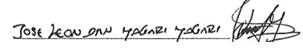 JOSE LEON DAN YAGARI YAGARI